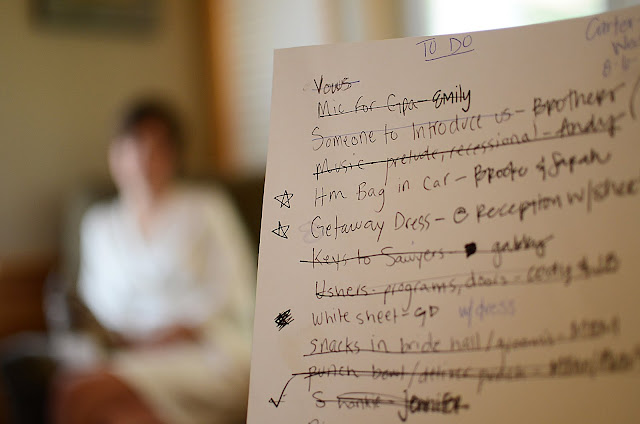 TO DO
Carter
Vows
Mic for Gpa - Emily
Someone to Introduce us - Brother
Music - prelude, recessional - Andy
Hm Bag in Car - Brooke & Sarah
Getaway Dress - @ Reception w/sheet
Keys to Sawyers gabby
Ushers - programs, doors -
White sheet - GD w/dress
snacks in bride hall/groom's -
punch bowl/deliver punch -
Jennifer